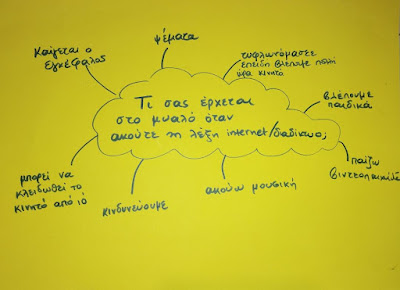 ψέματα
Καίγεται ο
εγκέφαλος
τυφλωνόμαστε
επειδή βλέπουμε πολλή
ώρα κινητό
βλέπουμε
παιδικά
Τι σας έρχεται
στο μυαλό όταν
ακούτε τη λέξη internet/διαδίκτυο;
παίζω
μπορεί να
κλειδωθεί το
κινητό από ιό
κινδυνεύουμε
ακούω μουσική